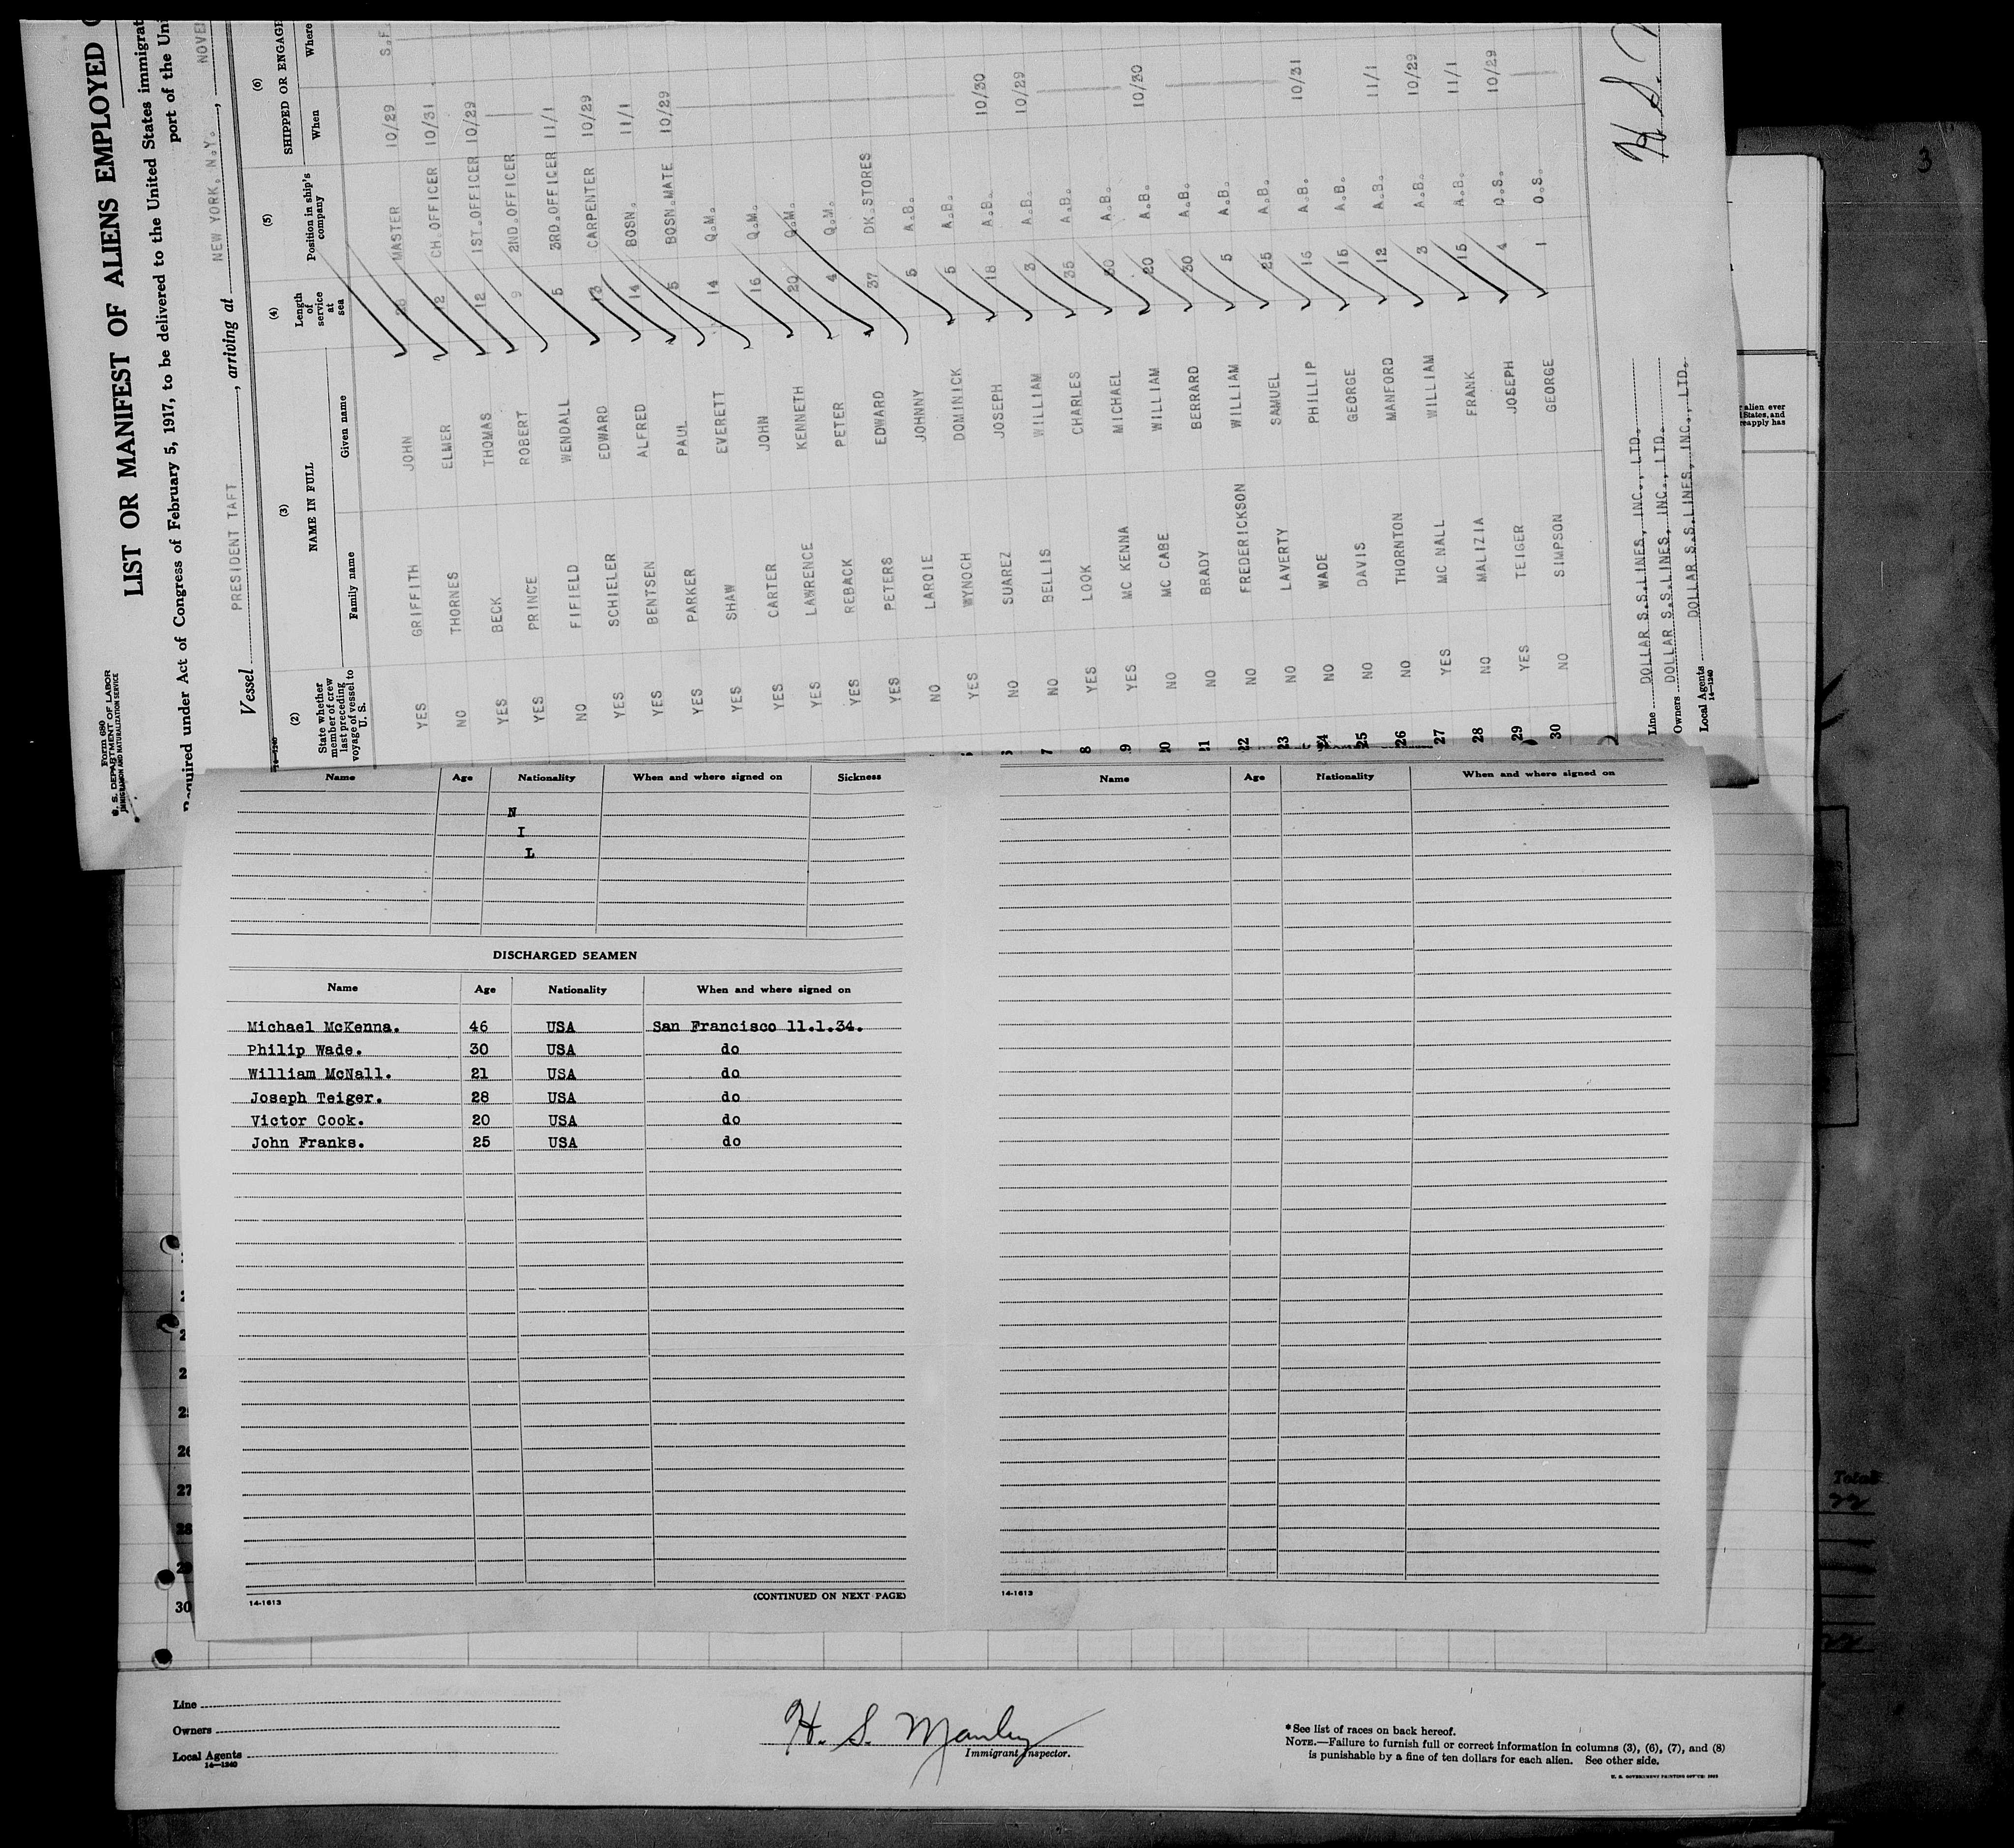 Form 680
U. S. DEPARTMENT OF LABOR
IMMIGRATION AND NATURALIZATION SERVICE
LIST OR MANIFEST OF ALIENS EMPLOYED
Required under Act of Congress of February 5, 1917, to be delivered to the United States immigrat
port of the Uni
Vessel PRESIDENT TAFT, arriving at NEW YORK. N.Y., NOVE
14-1240
(2) (3) (4) (5) (6)
State whether member of crew last preceding voyage of vessel to U. S. NAME IN FULL Length of service at sea Position in ship's company SHIPPED OR ENGAGE
Family name Given name When Where
YES GRIFFITH JOHN MASTER 10/29 S.F.
NO THORNES ELMER 12 CH.OFFICER 10/31
YES BECK THOMAS 12 1ST.OFFICER 10/29
YES PRINCE ROBERT 9 2ND.OFFICER
NO FIFIELD WENDALL 5 3RD.OFFICER 11/1
YES SCHIELER EDWARD 13 CARPENTER 10/29
YES BENTSEN ALFRED 14 BOSN. 11/1
YES PARKER PAUL 5 BOSN.MATE 10/29
YES SHAW EVERETT 14 Q.M.
YES CARTER JOHN 16 Q.M.
YES LAWRENCE KENNETH 20 Q.M.
YES REBACK PETER 4 Q.M.
YES PETERS EDWARD 37 DK.STORES
NO LAROIE JOHNNY 5 A.B.
YES WYNOCH DOMINICK 5 A.B.
6 NO SUAREZ JOSEPH 18 A.B. 10/30
7 NO BELLIS WILLIAM 3 A.B. 10/29
8 YES LOOK CHARLES 35 A.B.
9 YES MC KENNA MICHAEL 30 A.B.
20 NO MC CABE WILLIAM 20 A.B. 10/30
21 NO BRADY BERRARD 30 A.B.
22 NO FREDERICKSON WILLIAM 5 A.B.
23 NO LAVERTY SAMUEL 25 A.B.
24 NO WADE PHILLIP 16 A.B. 10/31
25 NO DAVIS GEORGE 15 A.B.
26 NO THORNTON MANFORD 12 A.B. 11/1
27 YES MC NALL WILLIAM 3 A.B. 10/29
28 NO MALIZIA FRANK 15 A.B. 11/1
29 YES TEIGER JOSEPH 4 O.S. 10/29
30 NO SIMPSON GEORGE 1 O.S.
Line DOLLAR S.S.LINES, INC., LTD.
Owners DOLLAR S.S.LINES, INC., LTD.
Local Agents DOLLAR S.S.LINES, INC., LTD.
14-1240
H. S.
3
alien ever
States, and
reapply has
Name Age Nationality When and where signed on Sickness
N
I
L
DISCHARGED SEAMEN
Name Age Nationality When and where signed on
Michael McKenna. 46 USA San Francisco 11.1.34.
Philip Wade. 30 USA do
William McNall. 21 USA do
Joseph Teiger. 28 USA do
Victor Cook. 20 USA do
John Franks. 25 USA do
14-1613 (CONTINUED ON NEXT PAGE)
Name Age Nationality When and where signed on
14-1613
26
27
28
29
30
Total
Line
Owners
Local Agents
14-1240
H. S. Manley
Immigrant Inspector.
*See list of races on back hereof.
NOTE.—Failure to furnish full or correct information in columns (3), (6), (7), and (8)
is punishable by a fine of ten dollars for each alien. See other side.
U. S. GOVERNMENT PRINTING OFFICE